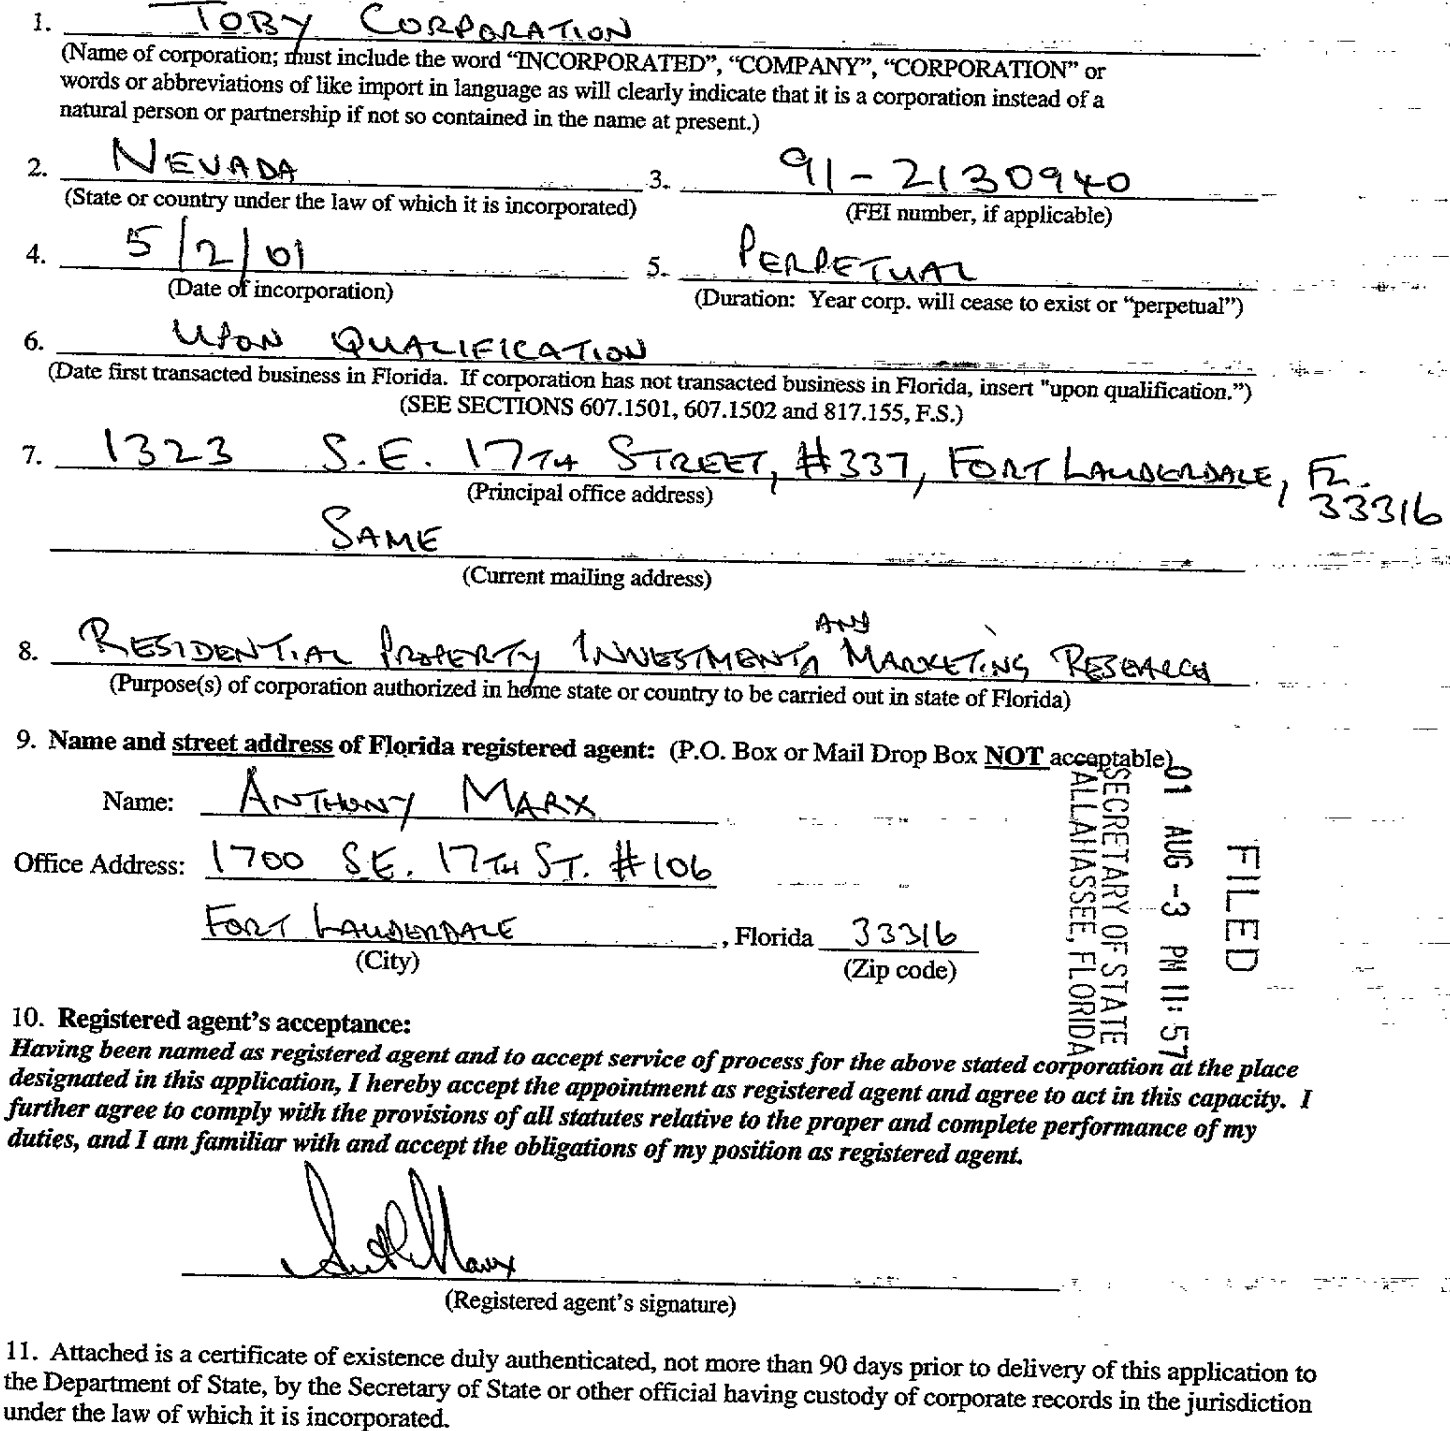 1. TOBY CORPORATION
(Name of corporation; must include the word “INCORPORATED”, “COMPANY”, “CORPORATION” or
words or abbreviations of like import in language as will clearly indicate that it is a corporation instead of a
natural person or partnership if not so contained in the name at present.)
2. NEVADA 3. 91-2130940
(State or country under the law of which it is incorporated) (FEI number, if applicable)
4. 5/2/01 5. PERPETUAL
(Date of incorporation) (Duration: Year corp. will cease to exist or “perpetual”)
6. UPON QUALIFICATION
(Date first transacted business in Florida. If corporation has not transacted business in Florida, insert "upon qualification.”)
(SEE SECTIONS 607.1501, 607.1502 and 817.155, F.S.)
7. 1323 S.E. 17TH STREET, #337, FORT LAUDERDALE, FL.
33316
(Principal office address)
SAME
(Current mailing address)
8. RESIDENTIAL PROPERTY INVESTMENT AND MARKETING RESEARCH
(Purpose(s) of corporation authorized in home state or country to be carried out in state of Florida)
9. Name and street address of Florida registered agent: (P.O. Box or Mail Drop Box NOT acceptable)
Name: ANTHONY MARX
Office Address: 1700 S.E. 17TH ST. #106
FORT LAUDERDALE, Florida 33316
(City) (Zip code)
FILED
01 AUG -3 PM 11:57
SECRETARY OF STATE
ALLAHASSEE, FLORIDA
10. Registered agent’s acceptance:
Having been named as registered agent and to accept service of process for the above stated corporation at the place
designated in this application, I hereby accept the appointment as registered agent and agree to act in this capacity. I
further agree to comply with the provisions of all statutes relative to the proper and complete performance of my
duties, and I am familiar with and accept the obligations of my position as registered agent.
(Registered agent’s signature)
11. Attached is a certificate of existence duly authenticated, not more than 90 days prior to delivery of this application to
the Department of State, by the Secretary of State or other official having custody of corporate records in the jurisdiction
under the law of which it is incorporated.